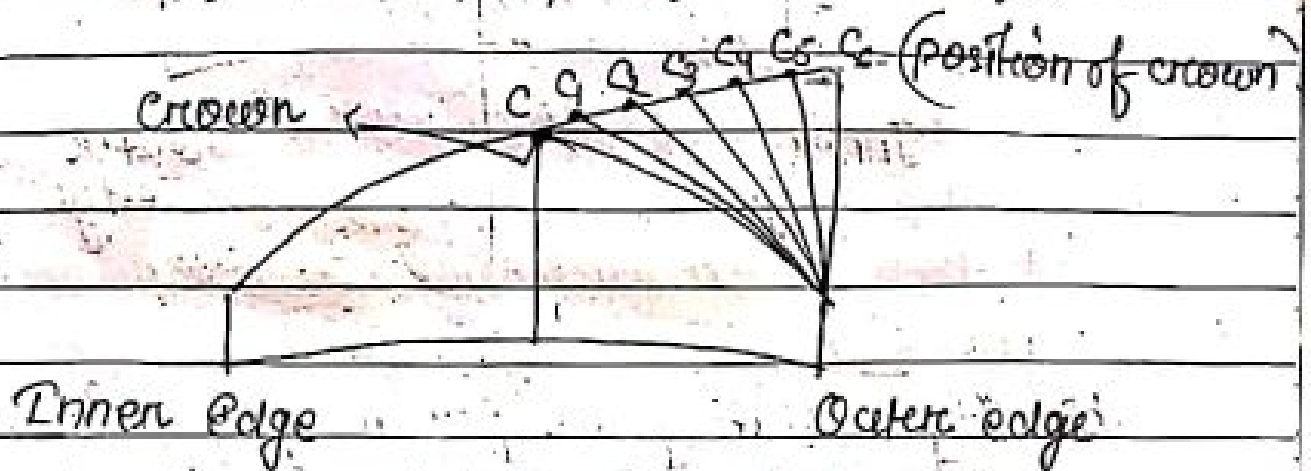 C C1 C2 C3 C4 C5 C6 (position of crown)
Crown
Inner edge
Outer edge